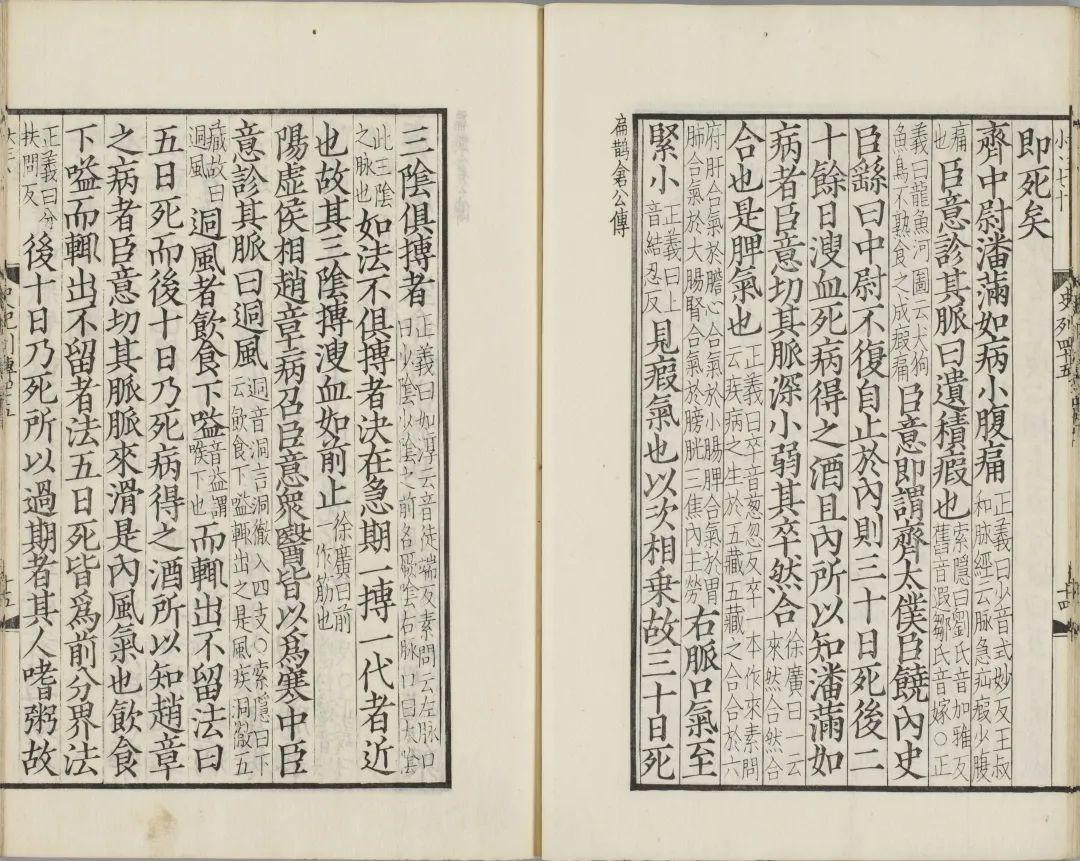 史列四十五
十四
即死矣
齊中尉潘滿如病小腹痛正義曰少音式妙反王叔和脉經云脉急疝瘕少腹
痛也臣意診其脈曰遺積瘕也索隱曰劉氏音加雅反舊音遐鄒氏音嫁○正
義曰龍魚河圖云犬狗魚鳥不熟食之成瘕痛臣意即謂齊太僕臣饒內史
臣繇曰中尉不復自止於內則三十日死後二
十餘日溲血死病得之酒且內所以知潘滿如
病者臣意切其脈深小弱其卒然合徐廣曰一云來然合來然合
合也是脾氣也正義曰卒音葱忽反卒一本作來素問云疾病之生於五藏五藏之合合於六
府肝合氣於膽心合氣於小腸脾合氣於胃肺合氣於大腸腎合氣於膀胱三焦內主勞右脈口氣至
緊小正義曰上音結忍反見瘕氣也以次相乘故三十日死
扁鵲倉公傳
三陰俱搏者正義曰如淳云音徒端反素問云左脉口曰少陰少陰之前名厥陰右脉口曰太陰
此三陰之脉也如法不俱搏者決在急期一搏一代者近
也故其三陰搏溲血如前止徐廣曰前一作筋也
陽虛侯相趙章病召臣意衆醫皆以爲寒中臣
意診其脈曰迵風迵音洞言洞徹入四支○索隱曰下云飲食下嗌輒出之是風疾洞徹五
藏故曰迵風迵風者飲食下嗌音益謂喉下也而輒出不留法曰
五日死而後十日乃死病得之酒所以知趙章
之病者臣意切其脈脈來滑是內風氣也飲食
下嗌而輒出不留者法五日死皆爲前分界法
正義曰分扶問反後十日乃死所以過期者其人嗜粥故